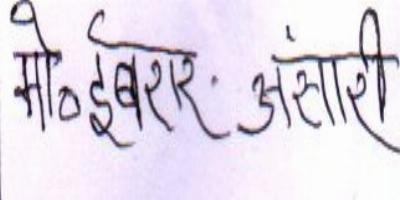 मो० ईबरार अंसारी